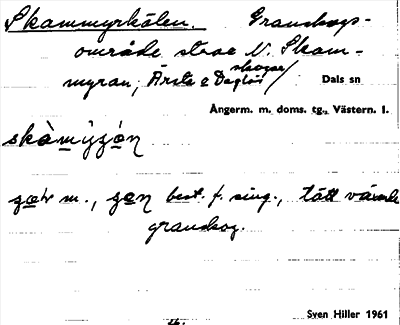 Skammyrkålen. Granskogs-
område strax N. Skam-
myran, Årsta o Deglös
skogar/
Dals sn
Ångerm. m. doms. tg., Västern. l.
m., best. f. sing., tätt växande
granskog.
Sven Hiller 1961